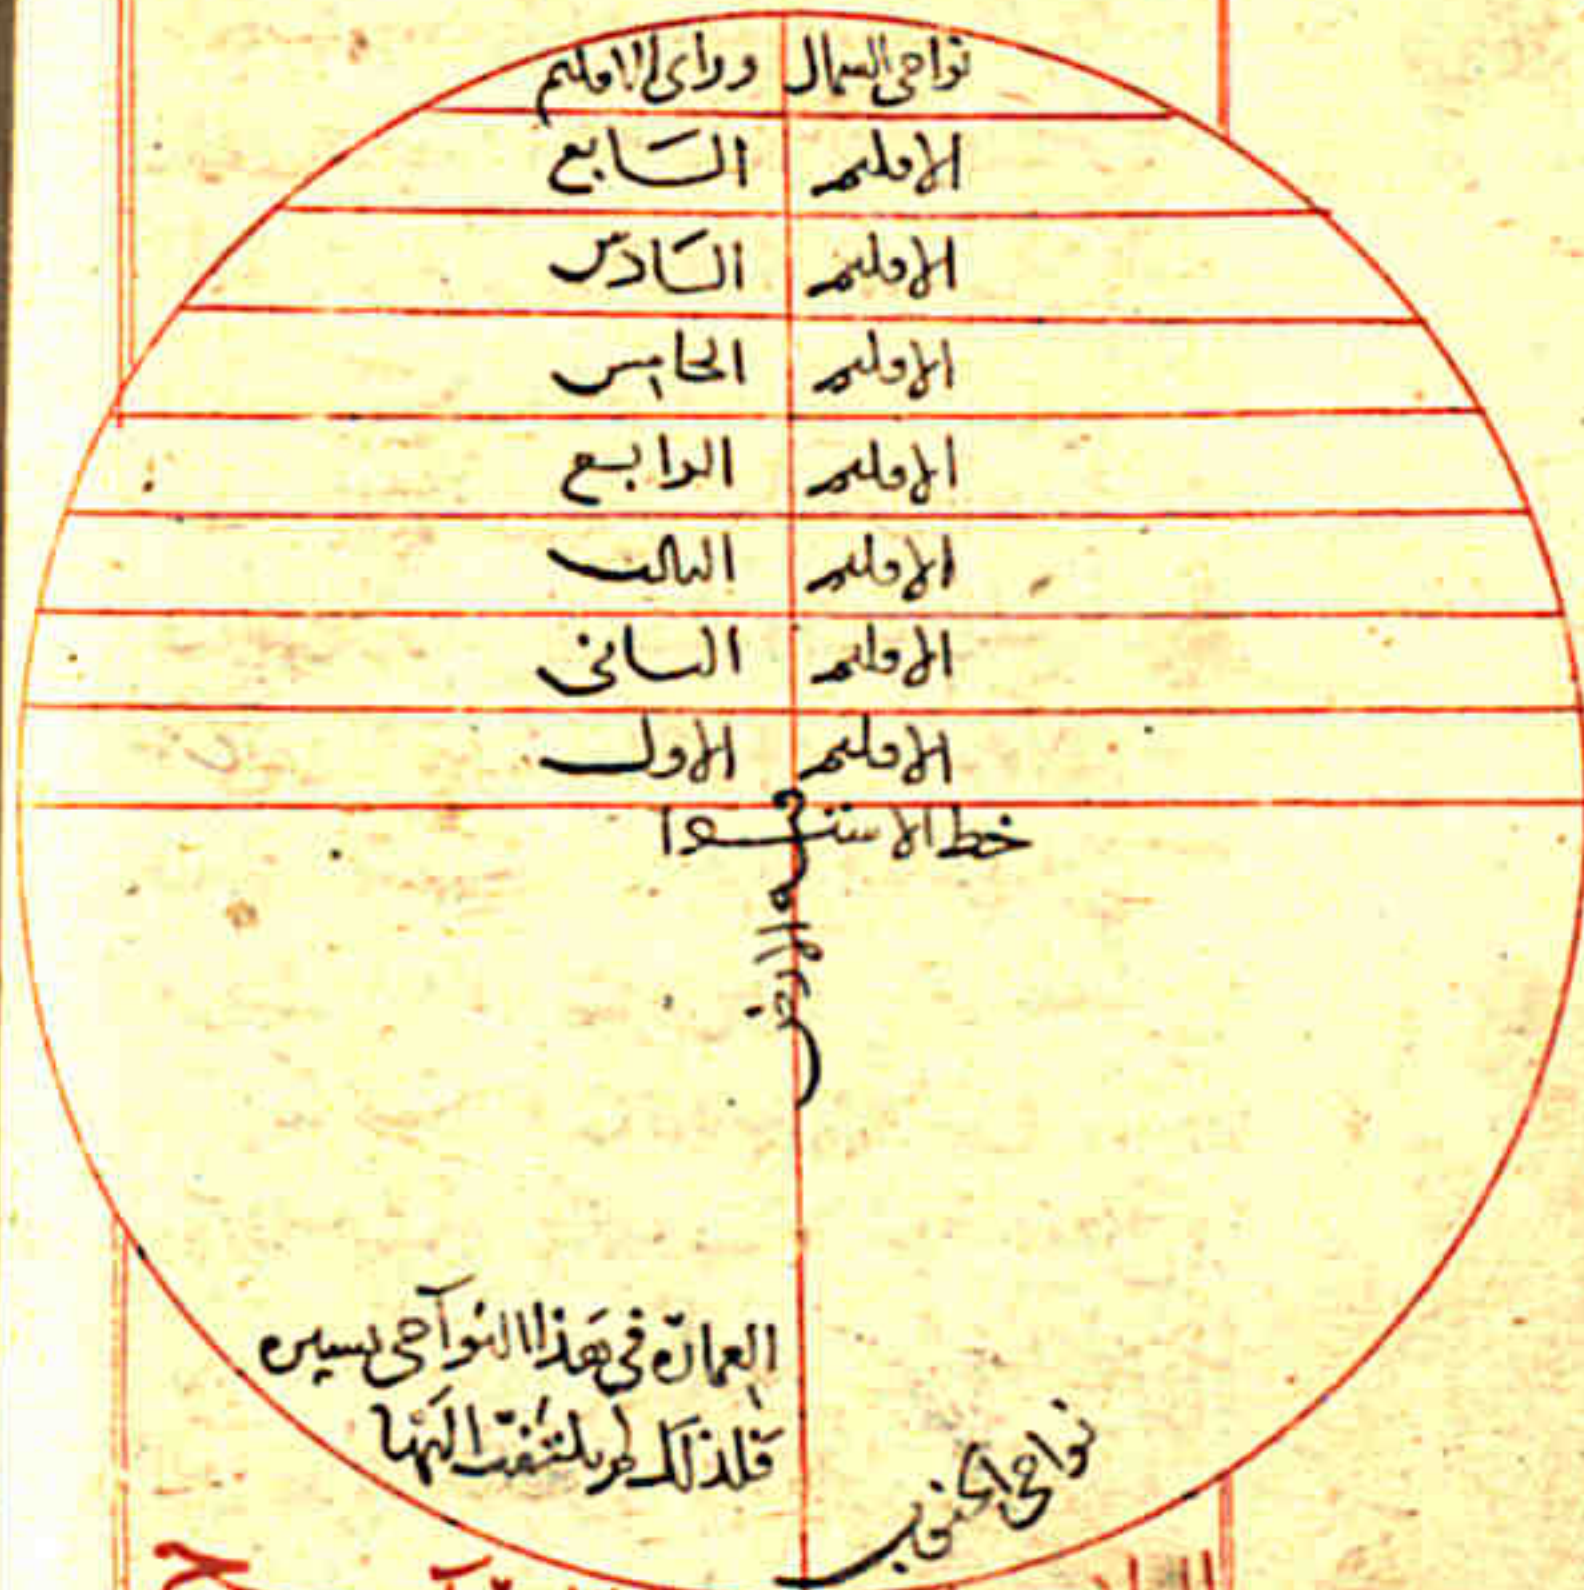 نواحى السمال وراى الاقليم
الاقليم السَابع
الاقليم السَادس
الاقليم الخامس
الاقليم الرابع
الاقليم الثالث
الاقليم الثانى
الاقليم الاول
خط الاستوا
قبه الارض
العمارة فى هذا النواحى يسيره
فلذلك لم يلتفت اليها
نواحى الجنوب